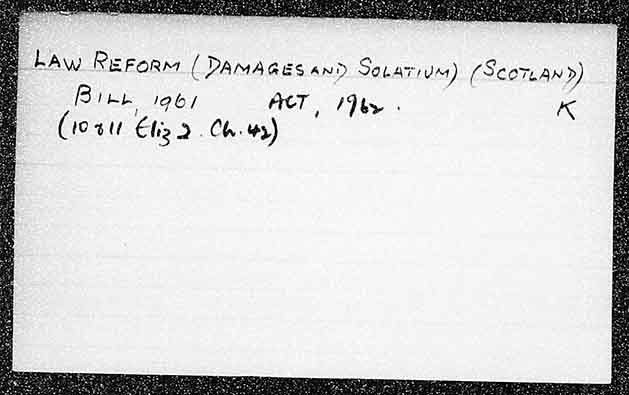 LAW REFORM (DAMAGES AND SOLATIUM) (SCOTLAND)
BILL, 1961 ACT, 1962. K
(10 & 11 Eliz 2. Ch. 42)